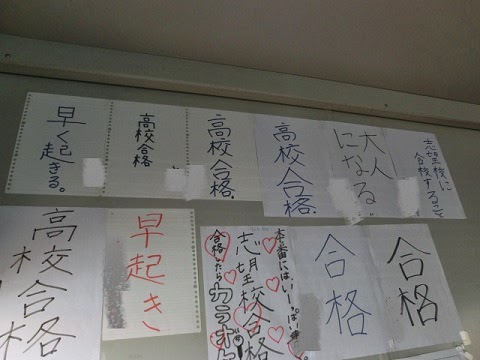 早く起きる。
高校合格
高校合格.
高校合格.
大人
になる
志望校に
合格すること
高校合格
早起き
本番にはいーっぱい
志望校合格
合格したら
カラオ
合格
合格